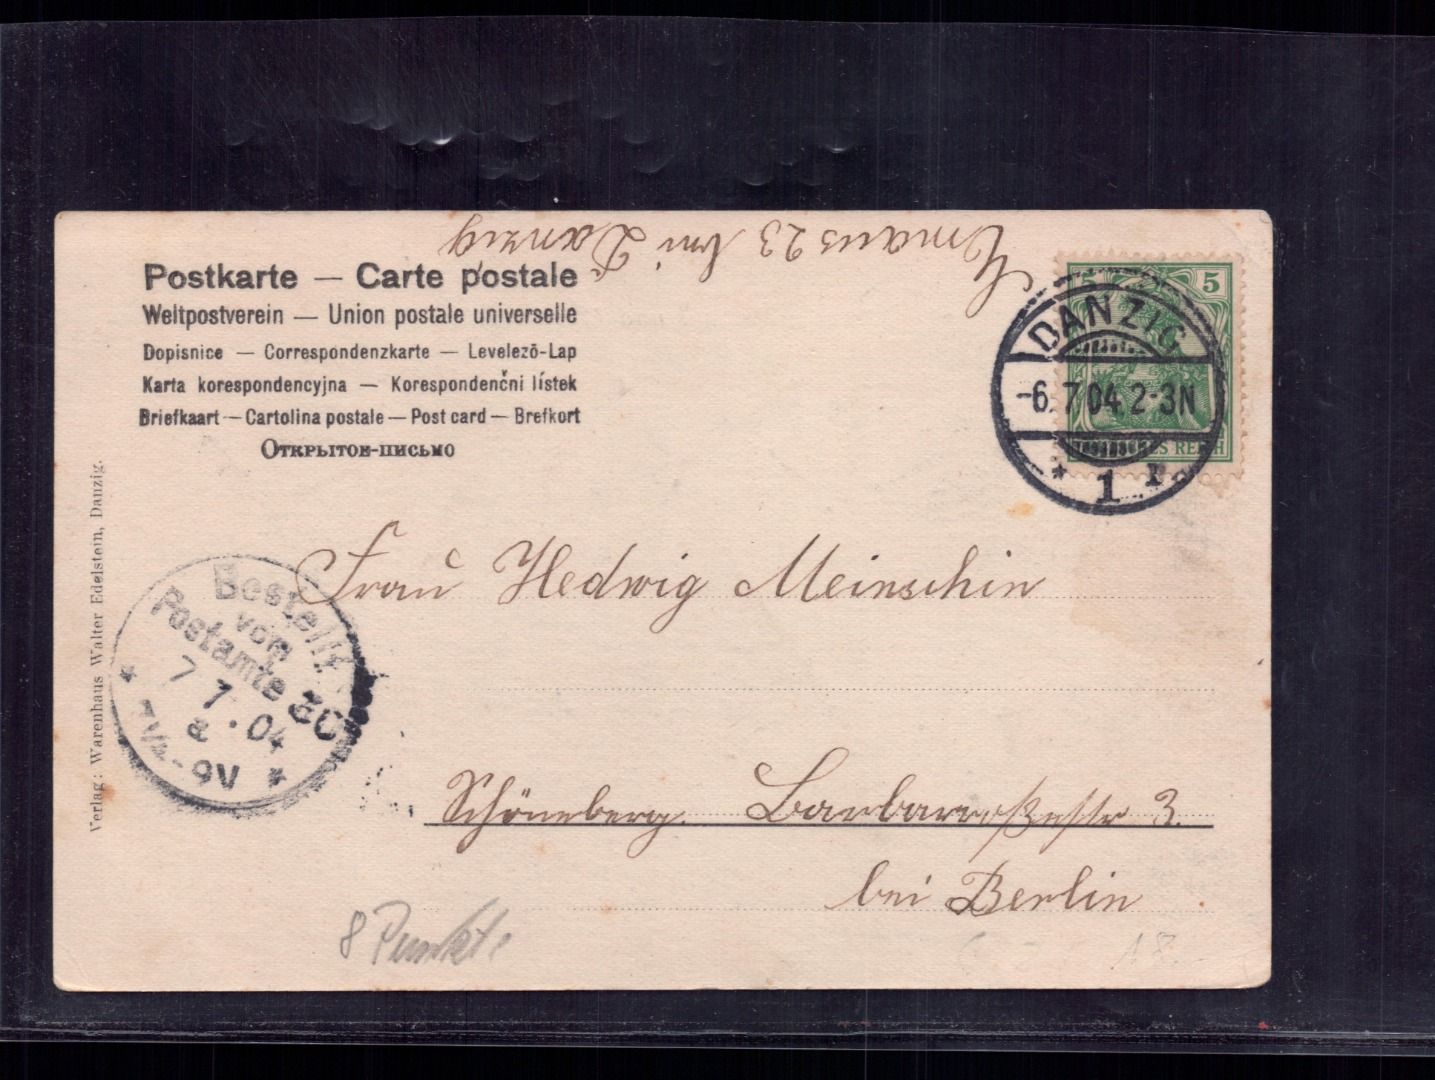 Emaus 23 bei Danzig
Postkarte — Carte postale
Weltpostverein — Union postale universelle
Dopisnice — Correspondenzkarte — Levelező-Lap
Karta korespondencyjna — Korespondenčni lístek
Briefkaart — Cartolina postale — Post card — Brefkort
Открытое-письмо
5 5
DEUTSCHES REICH
DANZIG
-6.7.04.2-3N
* 1 r.
Frau Hedwig Meinschin
Bestellt
vom
Postamte 30
7 7.04
a
* 7½-9V *
Schöneberg. Barbarroßastr 3.
bei Berlin
8 Punkte
18.
Verlag: Warenhaus Walter Edelstein, Danzig.